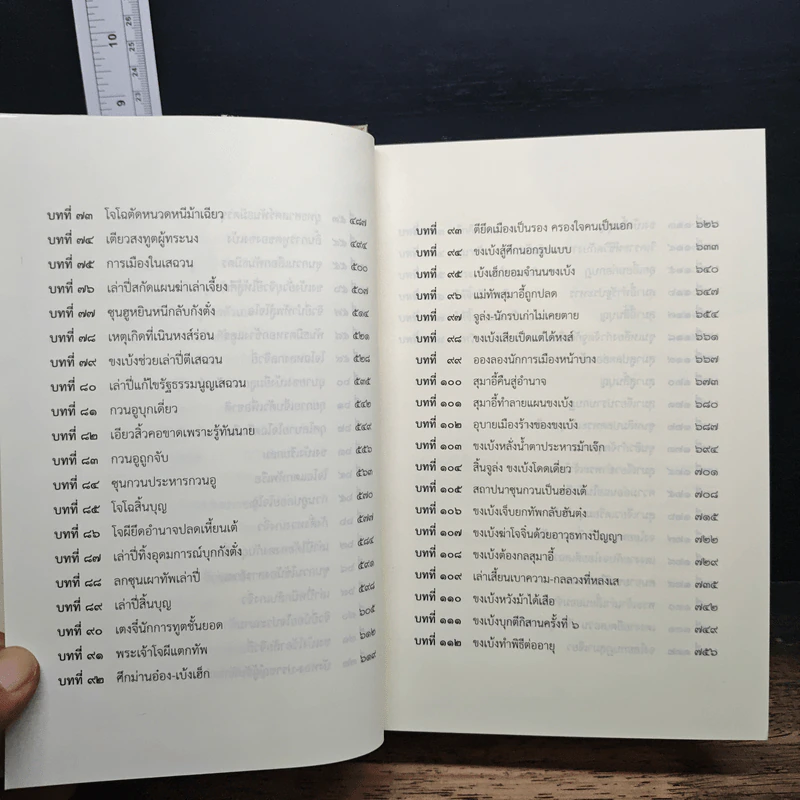 10
9
26
25
24
23
บทที่ ๗๓ โจโฉตัดหนวดหนีม้าเฉียว ๔๘๗
บทที่ ๗๔ เตียวสงทูตผู้ทระนง ๔๙๔
บทที่ ๗๕ การเมืองในเสฉวน ๕๐๐
บทที่ ๗๖ เล่าปี่สกัดแผนฆ่าเล่าเจี้ยง ๕๐๗
บทที่ ๗๗ ซุนฮูหยินหนีกลับกังตั๋ง ๕๑๔
บทที่ ๗๘ เหตุเกิดที่เนินหงส์ร่อน ๕๒๑
บทที่ ๗๙ ขงเบ้งช่วยเล่าปี่ตีเสฉวน ๕๒๘
บทที่ ๘๐ เล่าปี่แก้ไขรัฐธรรมนูญเสฉวน ๕๓๕
บทที่ ๘๑ กวนอูบุกเดี่ยว ๕๔๒
บทที่ ๘๒ เอียวสิ้วคอขาดเพราะรู้ทันนาย ๕๔๙
บทที่ ๘๓ กวนอูถูกจับ ๕๕๖
บทที่ ๘๔ ซุนกวนประหารกวนอู ๕๖๓
บทที่ ๘๕ โจโฉสิ้นบุญ ๕๗๐
บทที่ ๘๖ โจผียึดอำนาจปลดเหี้ยนเต้ ๕๗๗
บทที่ ๘๗ เล่าปี่ทิ้งอุดมการณ์บุกกังตั๋ง ๕๘๔
บทที่ ๘๘ ลกซุนเผาทัพเล่าปี่ ๕๙๑
บทที่ ๘๙ เล่าปี่สิ้นบุญ ๕๙๘
บทที่ ๙๐ เตงจี๋นักการทูตชั้นยอด ๖๐๕
บทที่ ๙๑ พระเจ้าโจผีแตกทัพ ๖๑๒
บทที่ ๙๒ ศึกม่านอ๋อง-เบ้งเฮ็ก ๖๑๙
บทที่ ๙๓ ตียึดเมืองเป็นรอง ครองใจคนเป็นเอก ๖๒๖
บทที่ ๙๔ ขงเบ้งสู้ศึกนอกรูปแบบ ๖๓๓
บทที่ ๙๕ เบ้งเฮ็กยอมจำนนขงเบ้ง ๖๔๐
บทที่ ๙๖ แม่ทัพสุมาอี้ถูกปลด ๖๔๗
บทที่ ๙๗ จูล่ง-นักรบเก่าไม่เคยตาย ๖๕๔
บทที่ ๙๘ ขงเบ้งเสียเป็ดแต่ได้หงส์ ๖๖๑
บทที่ ๙๙ อองลองนักการเมืองหน้าบาง ๖๖๗
บทที่ ๑๐๐ สุมาอี้คืนสู่อำนาจ ๖๗๓
บทที่ ๑๐๑ สุมาอี้ทำลายแผนขงเบ้ง ๖๘๐
บทที่ ๑๐๒ อุบายเมืองร้างของขงเบ้ง ๖๘๗
บทที่ ๑๐๓ ขงเบ้งหลั่งน้ำตาประหารม้าเจ๊ก ๖๙๔
บทที่ ๑๐๔ สิ้นจูล่ง ขงเบ้งโดดเดี่ยว ๗๐๑
บทที่ ๑๐๕ สถาปนาซุนกวนเป็นฮ่องเต้ ๗๐๘
บทที่ ๑๐๖ ขงเบ้งเจ็บยกทัพกลับฮันต๋ง ๗๑๕
บทที่ ๑๐๗ ขงเบ้งฆ่าโจจิ๋นด้วยอาวุธทางปัญญา ๗๒๒
บทที่ ๑๐๘ ขงเบ้งต้องกลสุมาอี้ ๗๒๙
บทที่ ๑๐๙ เล่าเสี้ยนเบาความ-กลลวงที่หล่งเส ๗๓๕
บทที่ ๑๑๐ ขงเบ้งหวังม้าได้เสือ ๗๔๒
บทที่ ๑๑๑ ขงเบ้งบุกตีกิสานครั้งที่ ๖ ๗๔๙
บทที่ ๑๑๒ ขงเบ้งทำพิธีต่ออายุ ๗๕๖